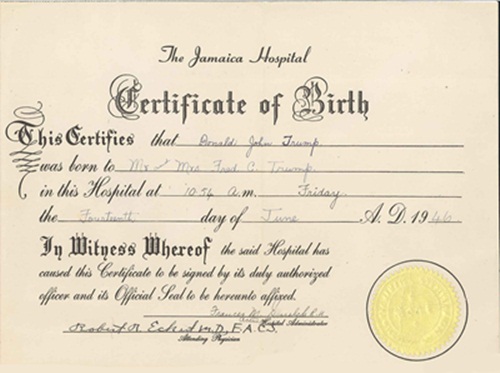 The Jamaica Hospital
Certificate of Birth
This Certifies that Donald John Trump
was born to Mr and Mrs Fred C. Trump
in this Hospital at 10:54 a.m. Friday
the Fourteenth day of June A. D. 1946
In Witness Whereof the said Hospital has
caused this Certificate to be signed by its duly authorized
officer and its Official Seal to be hereunto affixed.
Frances M.
Hospital Administrator
Robert R Eckert M.D., F.A.C.S.
Attending Physician